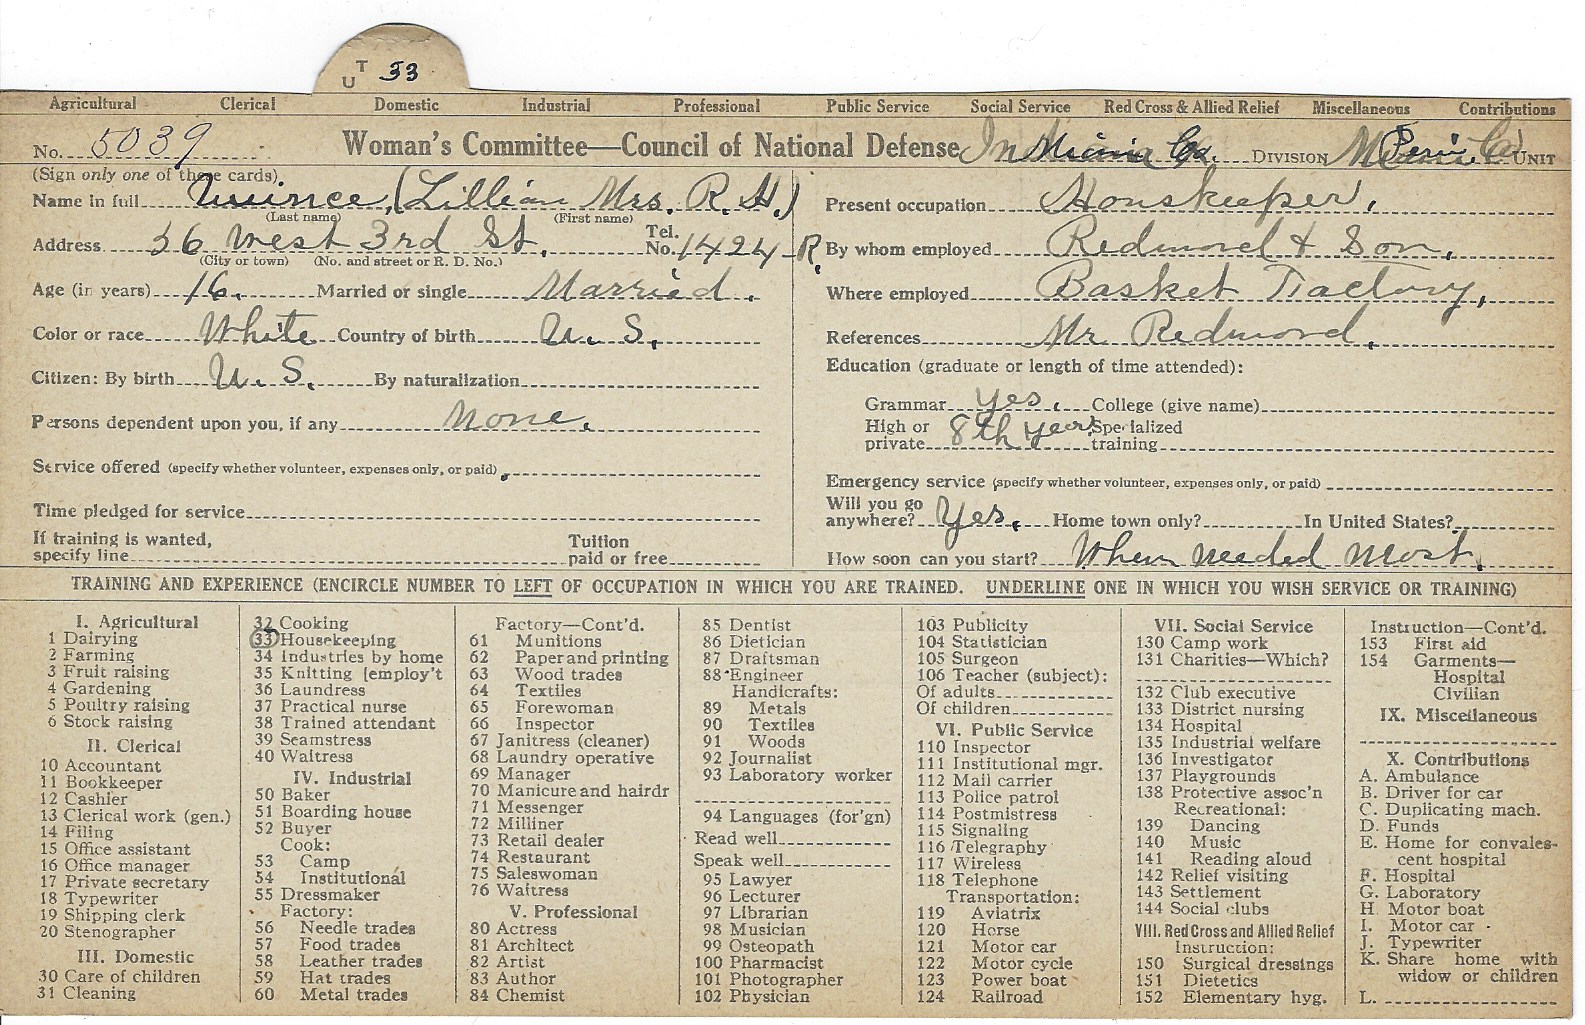 U T 33
Agricultural Clerical Domestic Industrial Professional Public Service Social Service Red Cross & Allied Relief Miscellaneous Contributions
No. 5039 Woman's Committee—Council of National Defense In Miami Co. DIVISION Peru UNIT
(Sign only one of these cards)
Name in full Quince, (Lillian Mrs. R. H.)
(Last name) (First name)
Address 56 West 3rd St. Tel. No. 1424-R.
(City or town) (No. and street or R. D. No.)
Age (in years) 16. Married or single Married.
Color or race White Country of birth U. S.
Citizen: By birth U. S. By naturalization
Persons dependent upon you, if any None.
Service offered (specify whether volunteer, expenses only, or paid)
Time pledged for service
If training is wanted, specify line Tuition paid or free
Present occupation Houskeeper.
By whom employed Redmond & Son.
Where employed Basket Factory,
References Mr Redmond.
Education (graduate or length of time attended):
Grammar yes. College (give name)
High or private 8th year Specialized training
Emergency service (specify whether volunteer, expenses only, or paid)
Will you go anywhere? Yes. Home town only? In United States?
How soon can you start? When needed most.
TRAINING AND EXPERIENCE (ENCIRCLE NUMBER TO LEFT OF OCCUPATION IN WHICH YOU ARE TRAINED. UNDERLINE ONE IN WHICH YOU WISH SERVICE OR TRAINING)
I. Agricultural
1 Dairying
2 Farming
3 Fruit raising
4 Gardening
5 Poultry raising
6 Stock raising
II. Clerical
10 Accountant
11 Bookkeeper
12 Cashier
13 Clerical work (gen.)
14 Filing
15 Office assistant
16 Office manager
17 Private secretary
18 Typewriter
19 Shipping clerk
20 Stenographer
III. Domestic
30 Care of children
31 Cleaning
32 Cooking
33 Housekeeping
34 Industries by home
35 Knitting [employ't
36 Laundress
37 Practical nurse
38 Trained attendant
39 Seamstress
40 Waitress
IV. Industrial
50 Baker
51 Boarding house
52 Buyer
Cook:
53 Camp
54 Institutional
55 Dressmaker
Factory:
56 Needle trades
57 Food trades
58 Leather trades
59 Hat trades
60 Metal trades
Factory—Cont'd.
61 Munitions
62 Paper and printing
63 Wood trades
64 Textiles
65 Forewoman
66 Inspector
67 Janitress (cleaner)
68 Laundry operative
69 Manager
70 Manicure and hairdr
71 Messenger
72 Milliner
73 Retail dealer
74 Restaurant
75 Saleswoman
76 Waitress
V. Professional
80 Actress
81 Architect
82 Artist
83 Author
84 Chemist
85 Dentist
86 Dietician
87 Draftsman
88 Engineer
Handicrafts:
89 Metals
90 Textiles
91 Woods
92 Journalist
93 Laboratory worker
94 Languages (for'gn)
Read well
Speak well
95 Lawyer
96 Lecturer
97 Librarian
98 Musician
99 Osteopath
100 Pharmacist
101 Photographer
102 Physician
103 Publicity
104 Statistician
105 Surgeon
106 Teacher (subject):
Of adults
Of children
VI. Public Service
110 Inspector
111 Institutional mgr.
112 Mail carrier
113 Police patrol
114 Postmistress
115 Signaling
116 Telegraphy
117 Wireless
118 Telephone
Transportation:
119 Aviatrix
120 Horse
121 Motor car
122 Motor cycle
123 Power boat
124 Railroad
VII. Social Service
130 Camp work
131 Charities—Which?
132 Club executive
133 District nursing
134 Hospital
135 Industrial welfare
136 Investigator
137 Playgrounds
138 Protective assoc'n
Recreational:
139 Dancing
140 Music
141 Reading aloud
142 Relief visiting
143 Settlement
144 Social clubs
VIII. Red Cross and Allied Relief
Instruction:
150 Surgical dressings
151 Dietetics
152 Elementary hyg.
Instruction—Cont'd.
153 First aid
154 Garments—
Hospital
Civilian
IX. Miscellaneous
X. Contributions
A. Ambulance
B. Driver for car
C. Duplicating mach.
D. Funds
E. Home for convales-
cent hospital
F. Hospital
G. Laboratory
H. Motor boat
I. Motor car
J. Typewriter
K. Share home with
widow or children
L.